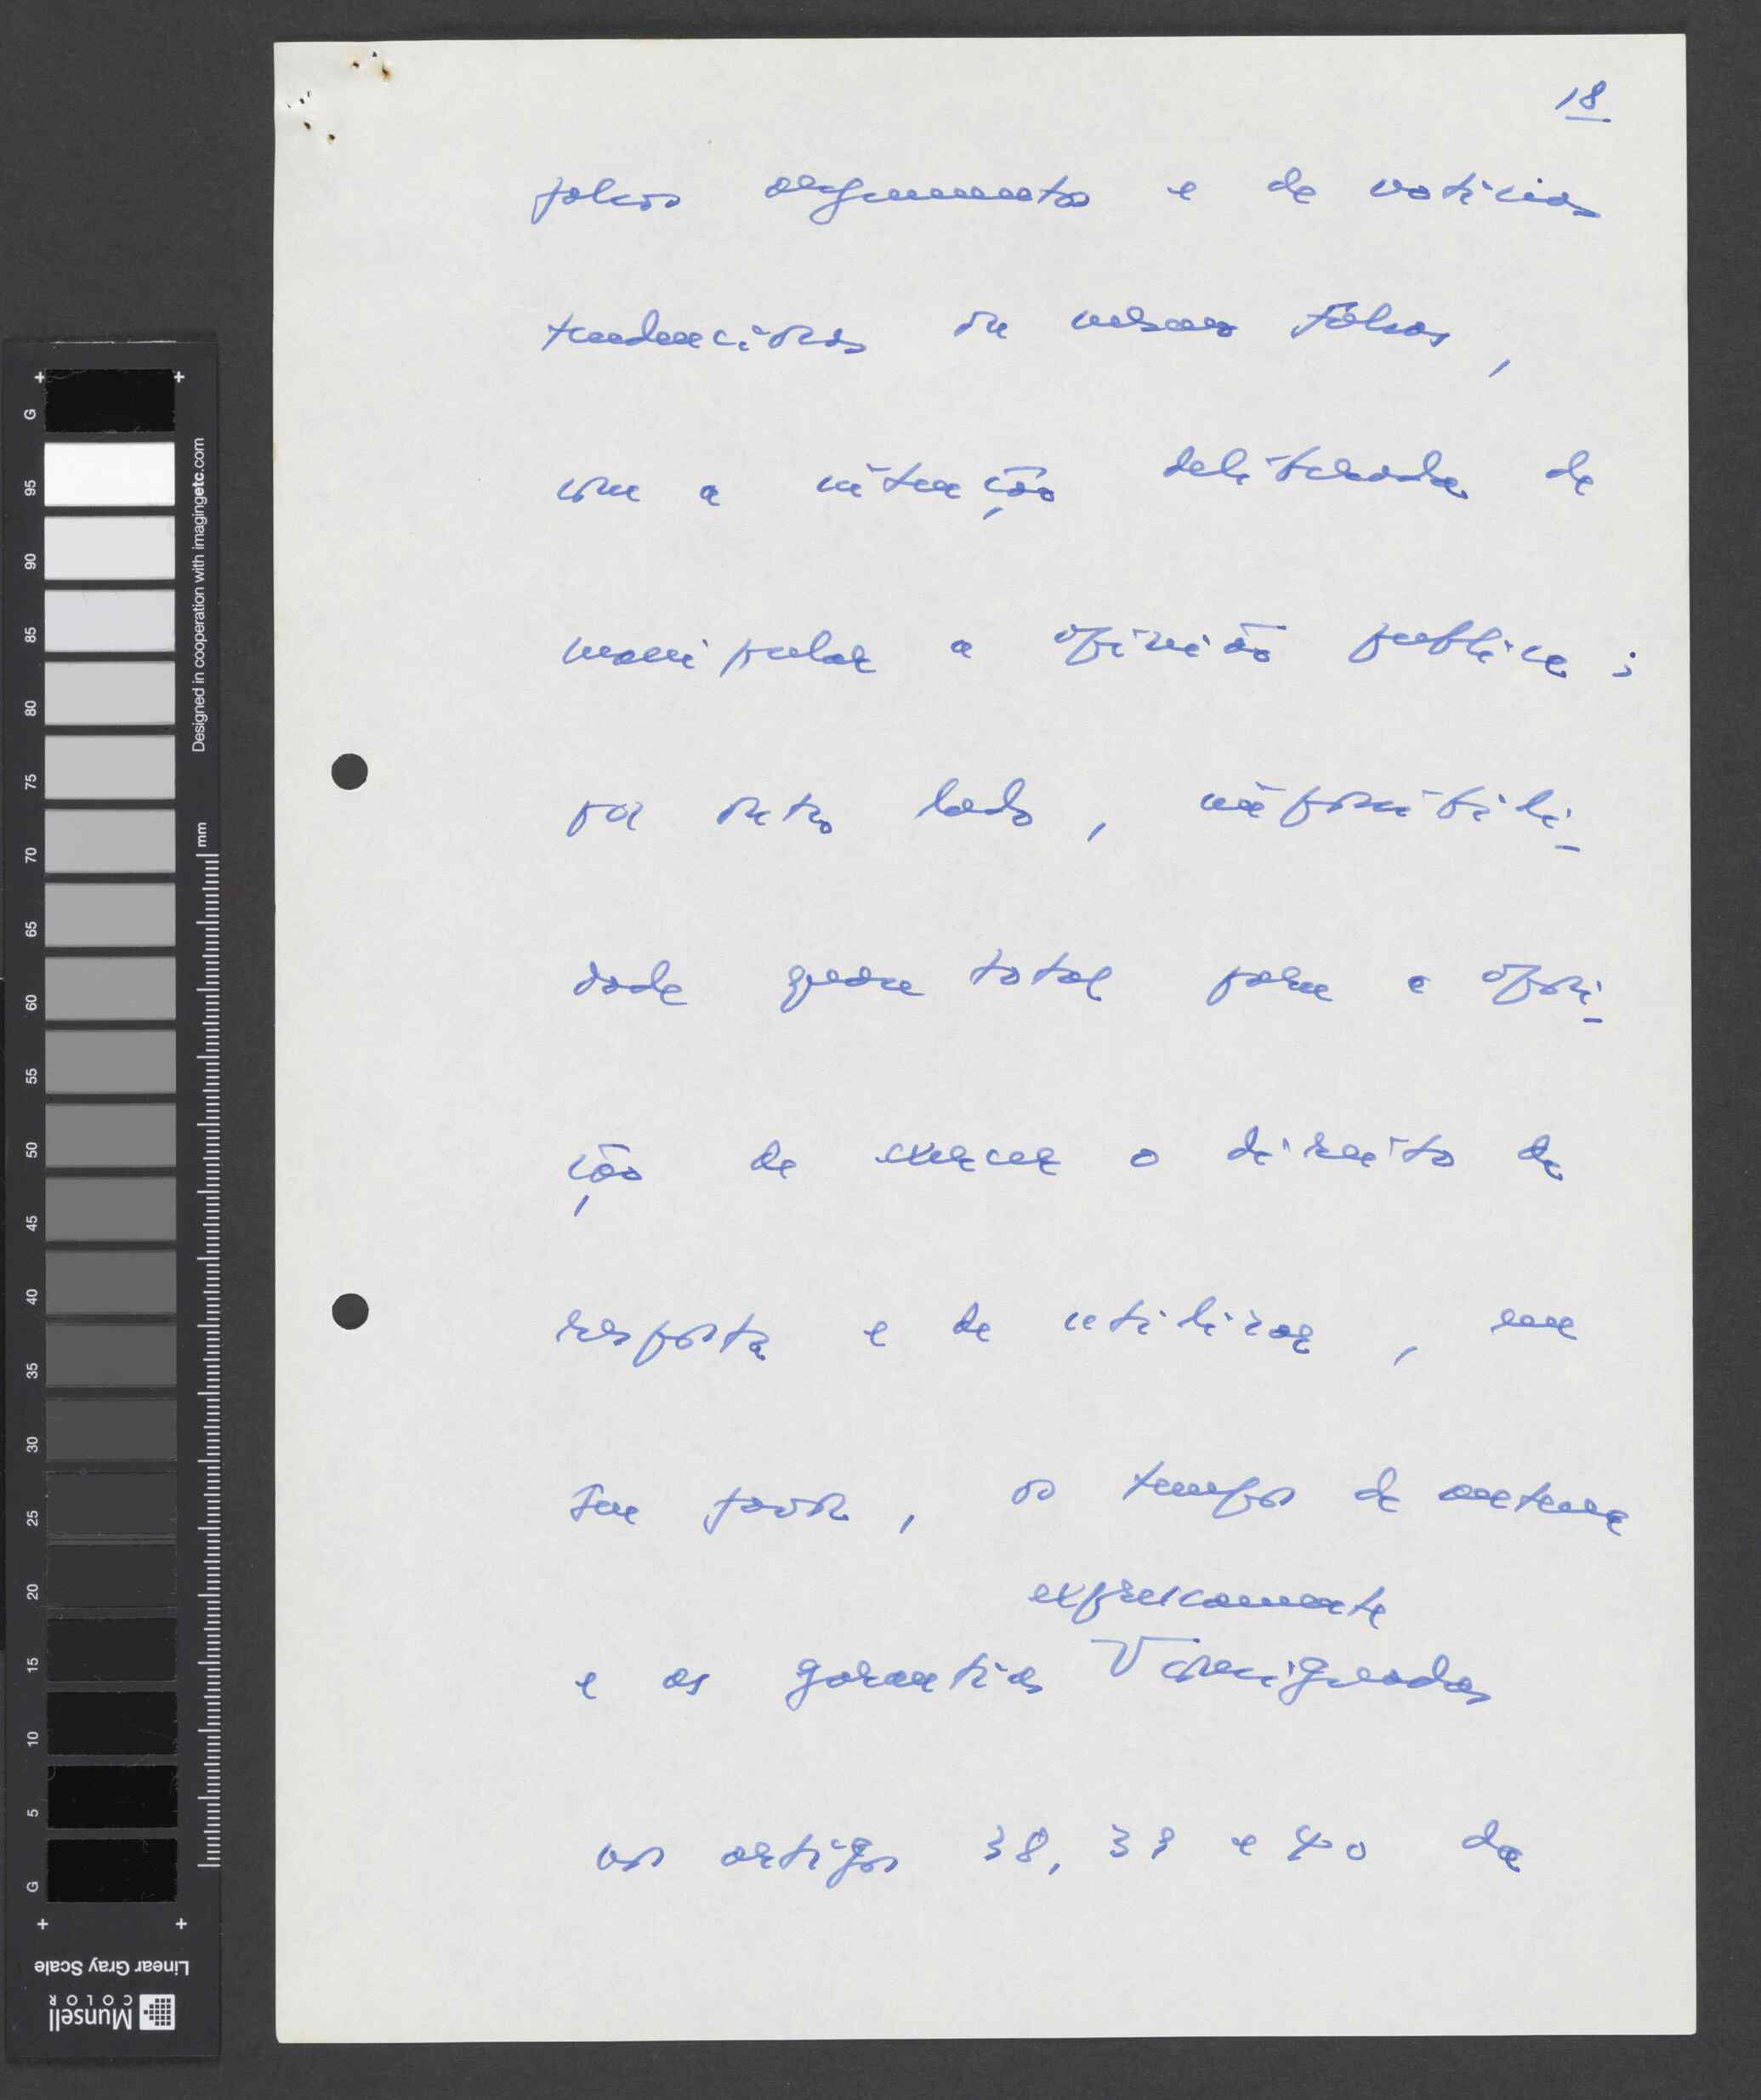 18
falsos argumentos e de noticias
tendenciosas ou mesmo falsas,
com a intenção deliberada de
manipular a opinião publica;
por outro lado, impossibili-
dade quase total para a oposi-
ção de exercer o direito de
resposta e de utilizar, em
seu favor, os tempos de antena
expressamente
e as garantias V consignadas
nos artigos 38, 39 e 40 da
G 95 90 85 80 75 70 65 60 55 50 45 40 35 30 25 20 15 10 5 G
Designed in cooperation with imagingetc.com
mm
Linear Gray Scale
Munsell
COLOR